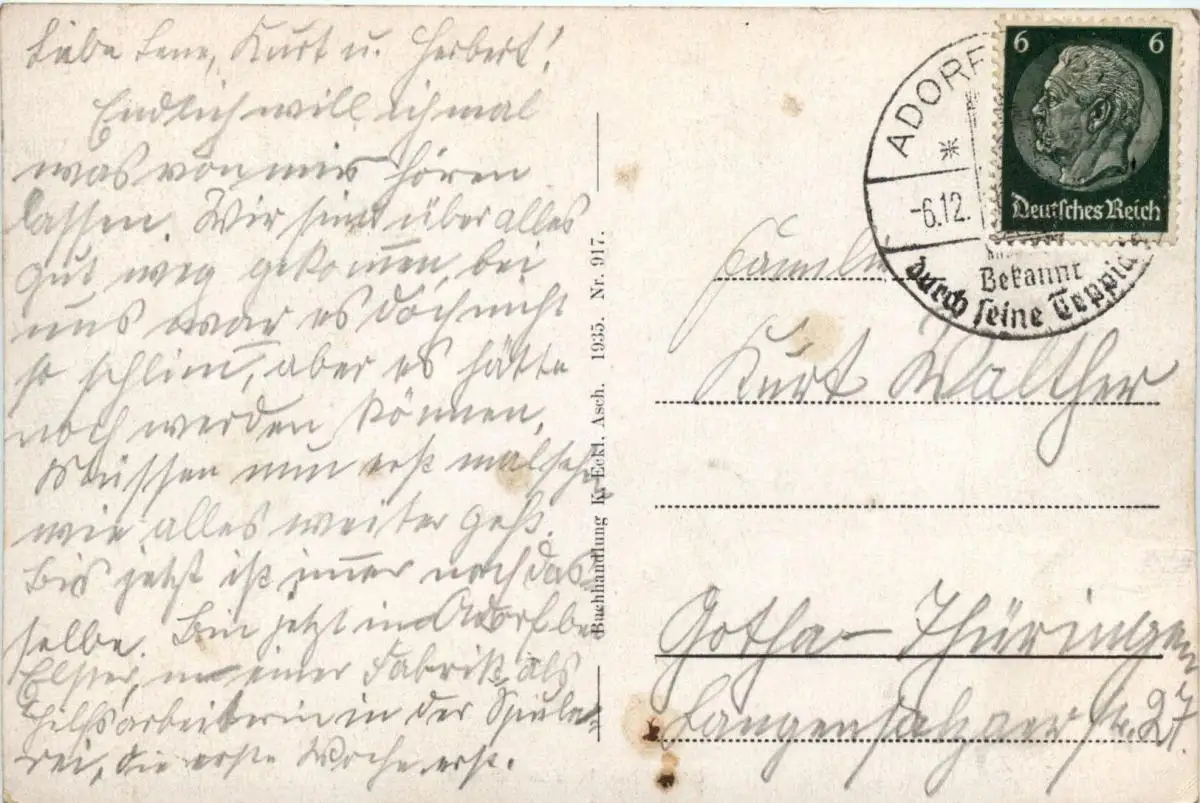 Liebe Lene, Kurt u. Herbert!
Endlich will ich mal
was von mir hören
lassen. Wir sind über alles
gut weg gekommen, bei
uns war es doch nicht
so schlimm, aber es hätte
noch werden können.
Müssen nun erst mal sehn
wie alles weiter geht.
Bis jetzt ist immer noch das
selbe. Bin jetzt in Adorf bei
Elster in einer Fabrik als
Hilfsarbeiterin in der Spule-
rei, die erste Woche erst.
Buchhandlung K. Eckl. Asch. 1935. Nr. 917.
ADORF
-6.12.
Bekannt
durch seine
6 6
Deutsches Reich
Familie
Kurt Walther
Gotha-Thüringen
Langensalzaer str. 27.